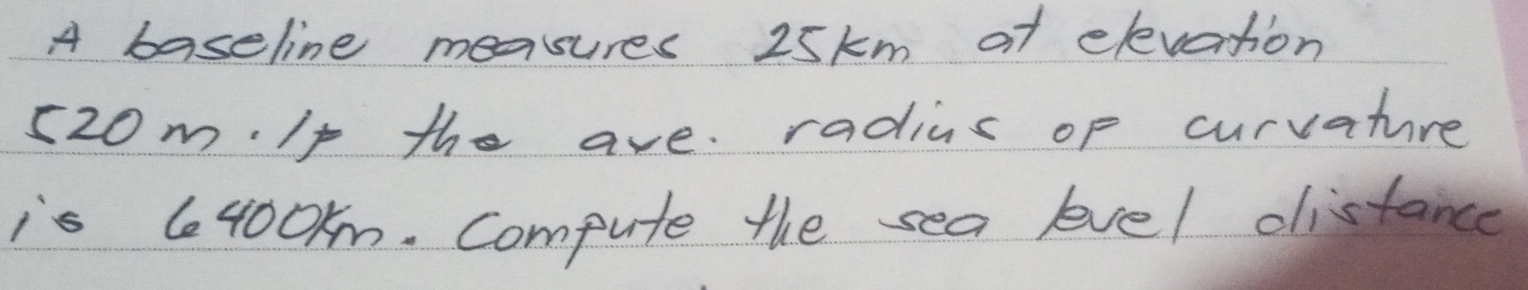 A baseline measures 25km at elevation
520m. If the ave. radius of curvature
is 6400km. Compute the sea level distance